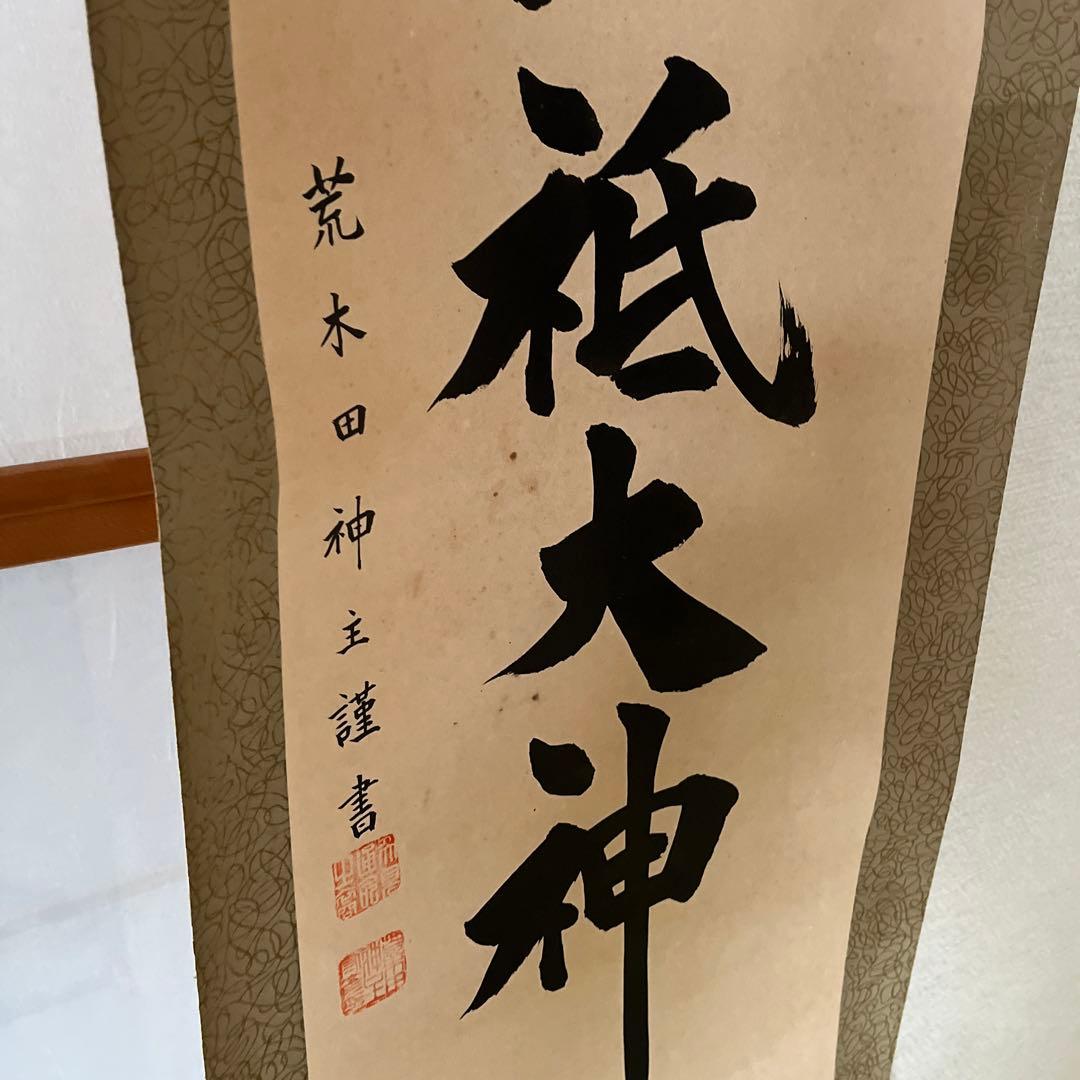 祗大神
荒木田神主謹書